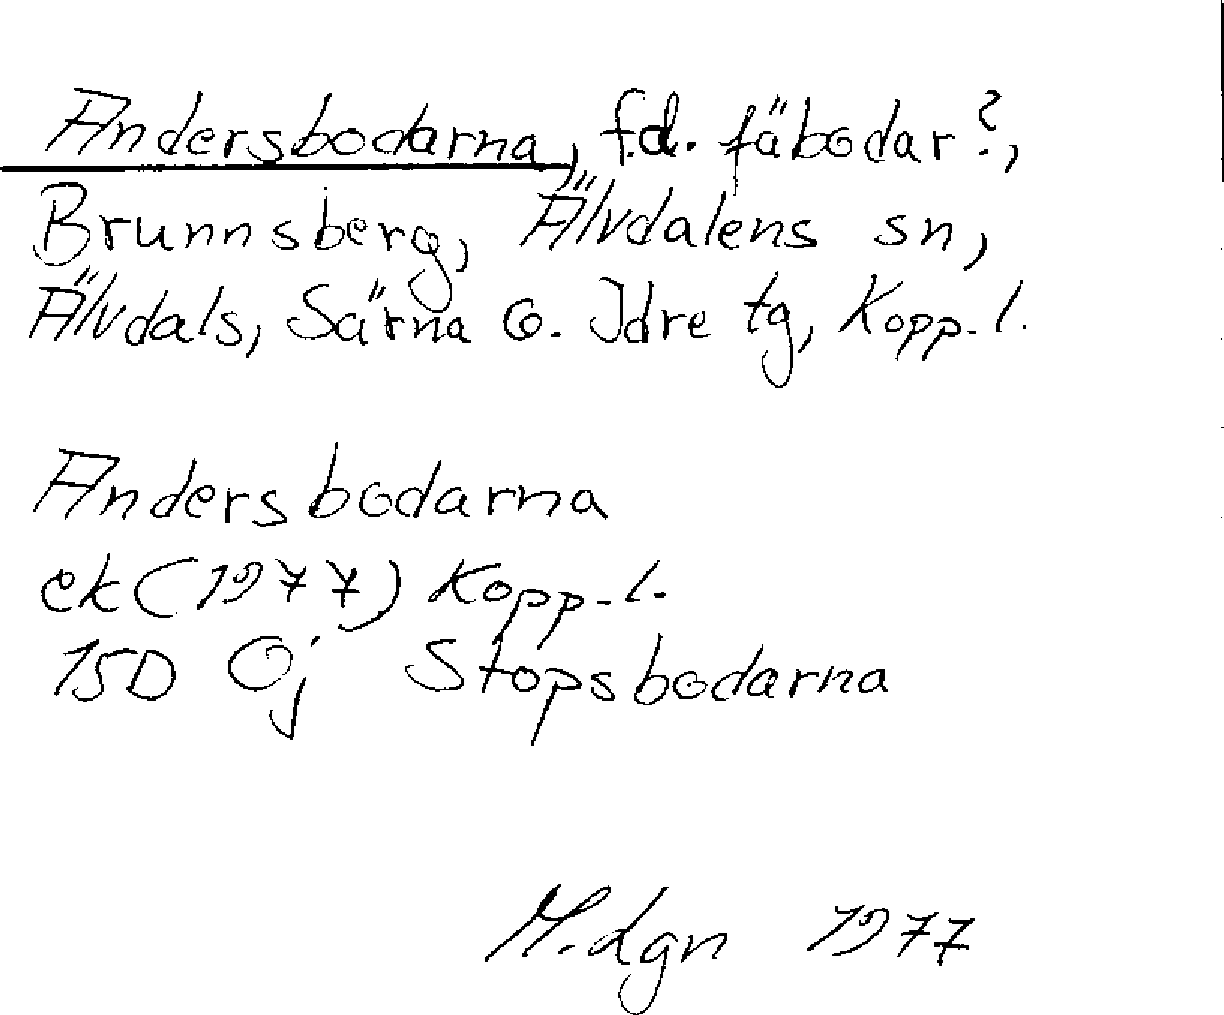 Andersbodarna, f.d. fäbodar?,
Brunnsberg, Älvdalens sn,
Älvdals, Särna o. Idre tg, Kopp. l.
Andersbodarna
ek (1977) Kopp. l.
15D Öj Stopsbodarna
M. dgn 1977